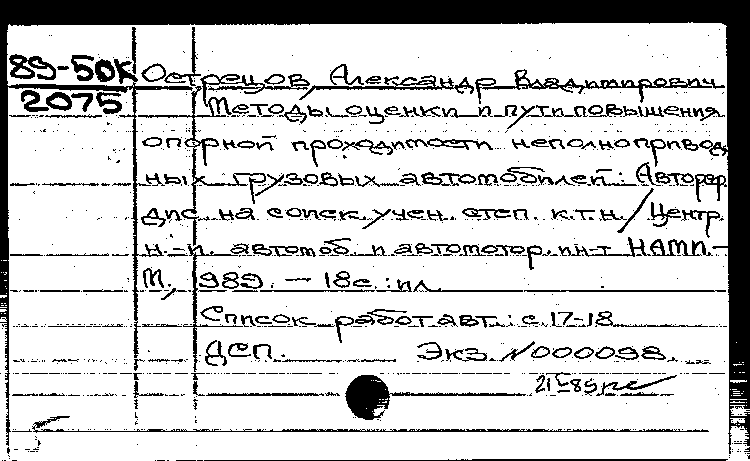 89-50К Острецов, Александр Владимирович
2075 Методы оценки и пути повышения
опорной проходимости неполнопривод-
ных грузовых автомобилей: Автореф.
дис. на соиск. учен. степ. к.т.н. / Центр.
н.-и. автомоб. и автомотор. ин-т НАМИ.-
М., 1989. — 18с.: ил.
Список работ авт.: с. 17-18
ДСП. Экз. N000098.